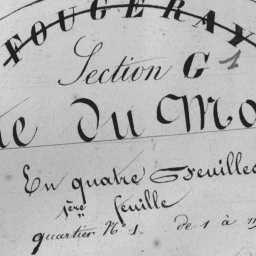 FOUGERAY
Section G 1
du Mo
En quatre Feuilles
1ère feuille
quartier N° 1. de 1 à